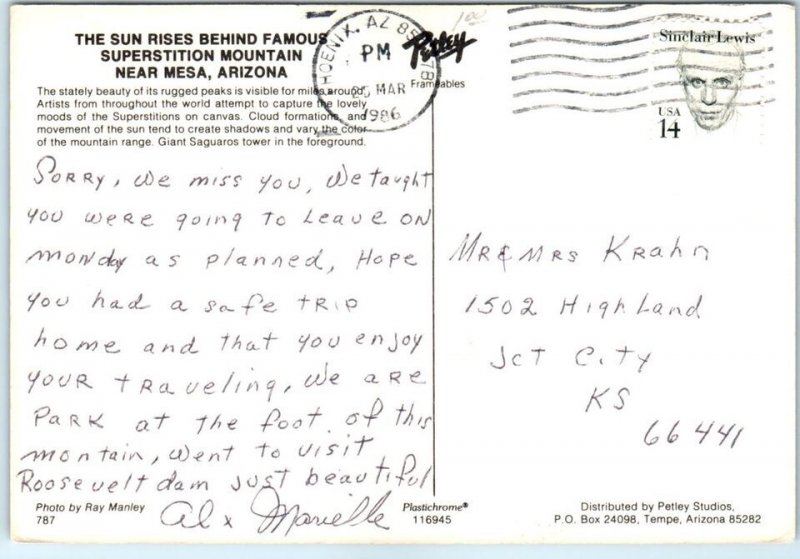 THE SUN RISES BEHIND FAMOUS
SUPERSTITION MOUNTAIN
NEAR MESA, ARIZONA
The stately beauty of its rugged peaks is visible for miles around.
Artists from throughout the world attempt to capture the lovely
moods of the Superstitions on canvas. Cloud formations and
movement of the sun tend to create shadows and vary the color
of the mountain range. Giant Saguaros tower in the foreground.
PHOENIX, AZ
PM
MAR
1986
1.00
Petley
Frameables
Sinclair Lewis
USA
14
Sorry, we miss you, we taught
you were going to leave on
monday as planned, Hope
you had a safe trip
home and that you enjoy
your traveling, we are
park at the foot of this
montain, went to visit
Roosevelt dam just beautiful
Al x Marielle
Mr & Mrs Krahn
1502 Highland
Jct City
KS
66441
Photo by Ray Manley
787
Plastichrome®
116945
Distributed by Petley Studios,
P.O. Box 24098, Tempe, Arizona 85282